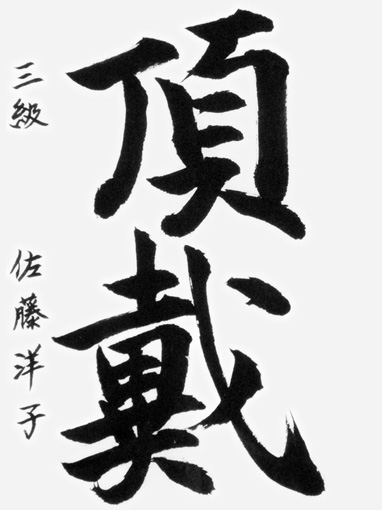 頂戴
三級 佐藤洋子